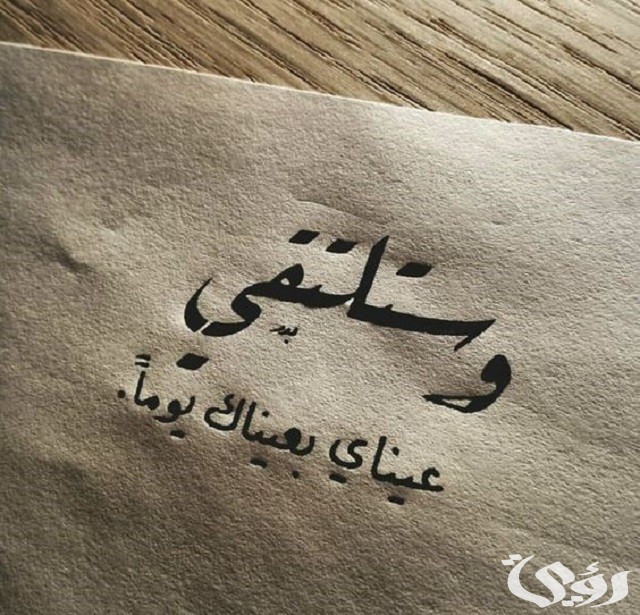 وستلتقي
عيناي بعيناك يوماً.
رؤية